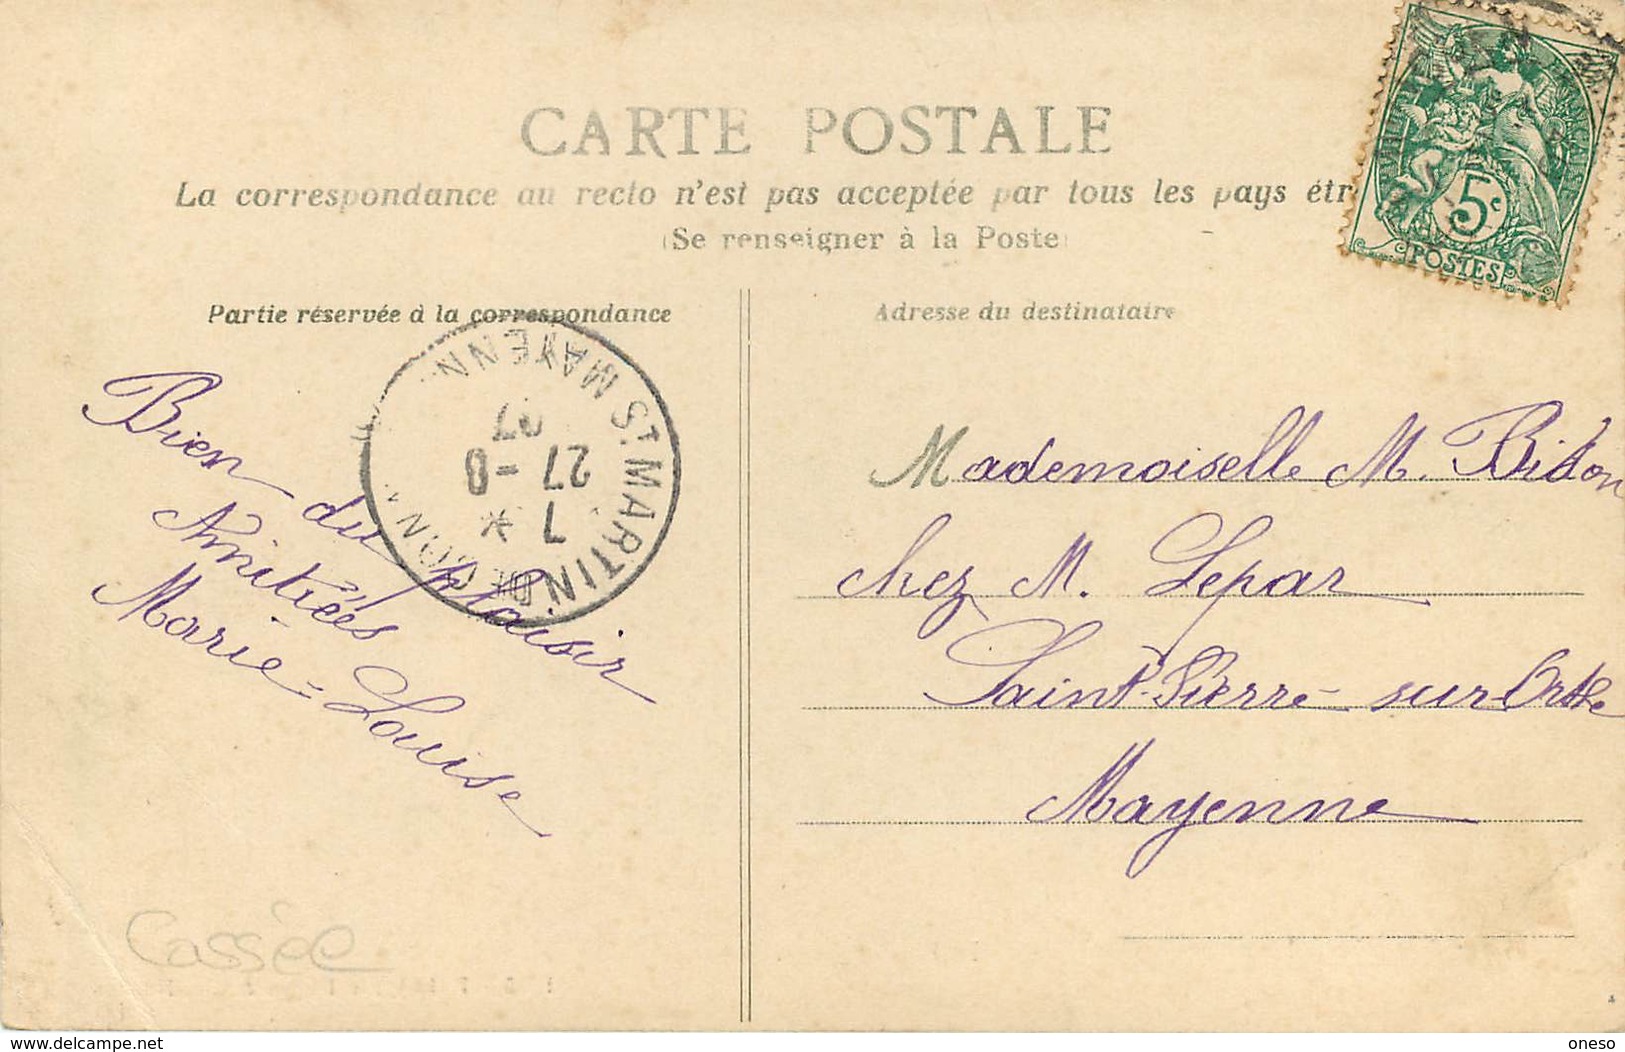 CARTE POSTALE
La correspondance au recto n'est pas acceptée par tous les pays étr
(Se renseigner à la Poste)
Partie réservée à la correspondance
Adresse du destinataire
5c
POSTES
ST MARTIN DE CONN
MAYENN
7 *
27 - 8
07
Bien du plaisir
Amitiées
Marie-Louise
Mademoiselle M. Bidon
chez M. Lepar
Saint-Pierre-sur Orthe
Mayenne
Cassée
www.delcampe.net
oneso